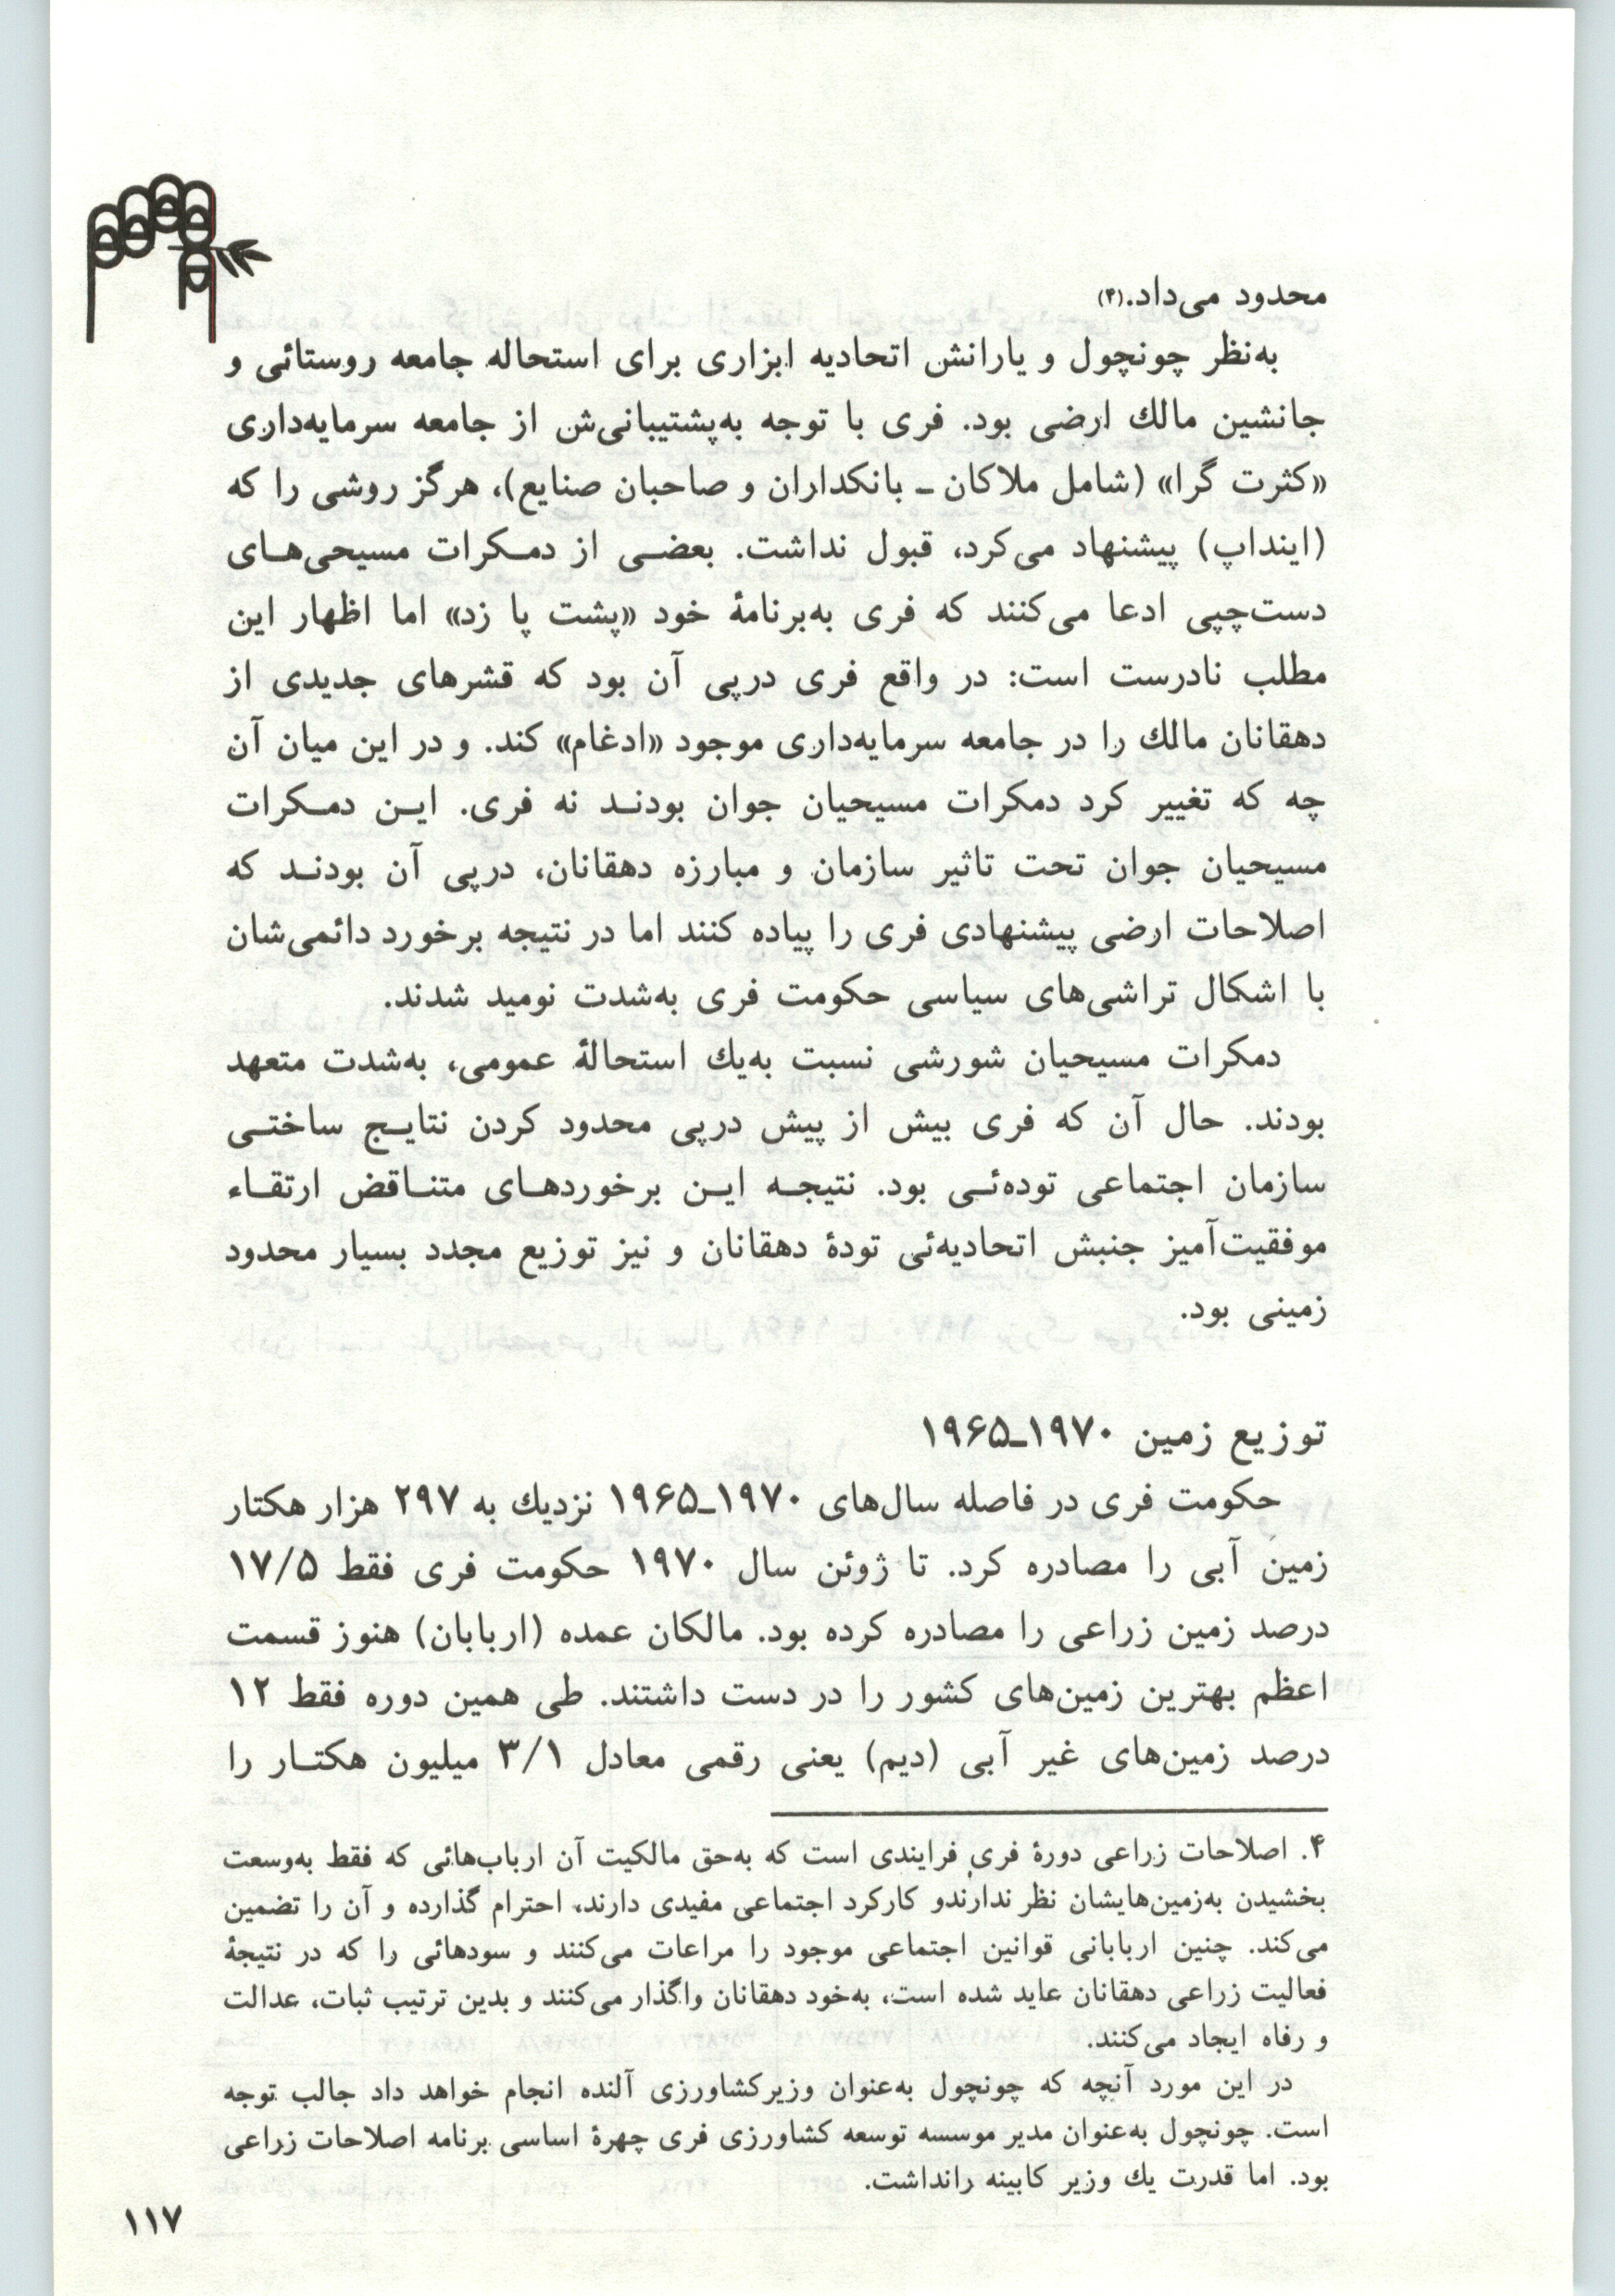 محدود می‌داد.(۴)
به‌نظر چونچول و یارانش اتحادیه ابزاری برای استحاله جامعه روستائی و
جانشین مالك ارضی بود. فری با توجه به‌پشتیبانی‌ش از جامعه سرمایه‌داری
«کثرت گرا» (شامل ملاکان ـ بانکداران و صاحبان صنایع)، هرگز روشی را که
(اینداپ) پیشنهاد می‌کرد، قبول نداشت. بعضی از دمکرات مسیحی‌های
دست‌چپی ادعا می‌کنند که فری به‌برنامهٔ خود «پشت پا زد» اما اظهار این
مطلب نادرست است: در واقع فری درپی آن بود که قشرهای جدیدی از
دهقانان مالك را در جامعه سرمایه‌داری موجود «ادغام» کند. و در این میان آن
چه که تغییر کرد دمکرات مسیحیان جوان بودند نه فری. این دمکرات
مسیحیان جوان تحت تاثیر سازمان و مبارزه دهقانان، درپی آن بودند که
اصلاحات ارضی پیشنهادی فری را پیاده کنند اما در نتیجه برخورد دائمی‌شان
با اشکال تراشی‌های سیاسی حکومت فری به‌شدت نومید شدند.
دمکرات مسیحیان شورشی نسبت به‌یك استحالهٔ عمومی، به‌شدت متعهد
بودند. حال آن که فری بیش از پیش درپی محدود کردن نتایج ساختی
سازمان اجتماعی توده‌ئی بود. نتیجه این برخوردهای متناقض ارتقاء
موفقیت‌آمیز جنبش اتحادیه‌ئی تودهٔ دهقانان و نیز توزیع مجدد بسیار محدود
زمینی بود.
توزیع زمین ۱۹۷۰ـ۱۹۶۵
حکومت فری در فاصله سال‌های ۱۹۷۰ـ۱۹۶۵ نزدیك به ۲۹۷ هزار هکتار
زمین آبی را مصادره کرد. تا ژوئن سال ۱۹۷۰ حکومت فری فقط ۱۷/۵
درصد زمین زراعی را مصادره کرده بود. مالکان عمده (اربابان) هنوز قسمت
اعظم بهترین زمین‌های کشور را در دست داشتند. طی همین دوره فقط ۱۲
درصد زمین‌های غیر آبی (دیم) یعنی رقمی معادل ۳/۱ میلیون هکتار را
۴. اصلاحات زراعی دورهٔ فری فرایندی است که به‌حق مالکیت آن ارباب‌هائی که فقط به‌وسعت
بخشیدن به‌زمین‌هایشان نظر ندارندو کارکرد اجتماعی مفیدی دارند، احترام گذارده و آن را تضمین
می‌کند. چنین اربابانی قوانین اجتماعی موجود را مراعات می‌کنند و سودهائی را که در نتیجهٔ
فعالیت زراعی دهقانان عاید شده است، به‌خود دهقانان واگذار می‌کنند و بدین ترتیب ثبات، عدالت
و رفاه ایجاد می‌کنند.
در این مورد آنچه که چونچول به‌عنوان وزیرکشاورزی آلنده انجام خواهد داد جالب توجه
است. چونچول به‌عنوان مدیر موسسه توسعه کشاورزی فری چهرهٔ اساسی برنامه اصلاحات زراعی
بود. اما قدرت یك وزیر کابینه رانداشت.
۱۱۷